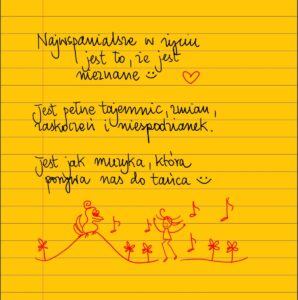 Najwspanialsze w życiu
jest to, że jest
nieznane
Jest pełne tajemnic, zmian,
zaskoczeń i niespodzianek.
Jest jak muzyka, która
porywa nas do tańca